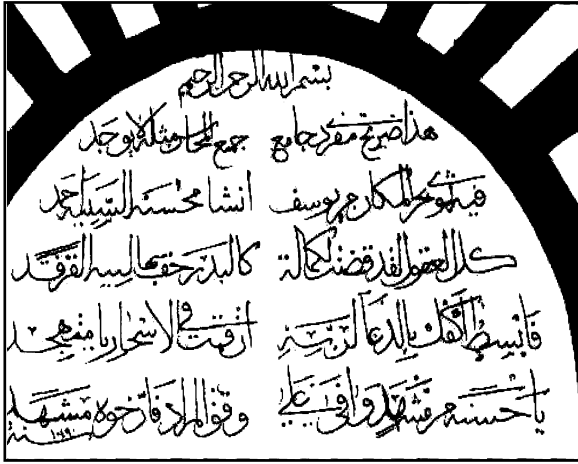 بسم الله الرحمن الرحيم
هذا ضريح مفرد جامع جمع المحاسن مثله لا يوجد
فيه بحر المكارم يوسف انشا محسنه السيد احمد
كل العقول لقد قضت لكماله كالبدر حف الفرقد
فابسط اكفك بالدعا ان قمت في الاسحار يا متهجد
يا حسنه من مشهد وافى على وفق المراد فارخوه مشهد
سنة